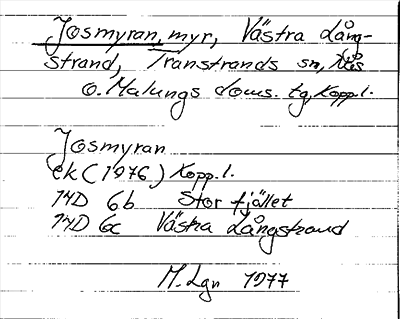 Josmyran, myr, Västra Lång-
strand, Transtrands sn, Nås
o. Malungs doms. tg, Kopp.l.
Josmyran
ek (1976) Kopp.l.
14D 6b Storfjället
14D 6c Västra Långstrand
M. Lgn 1977